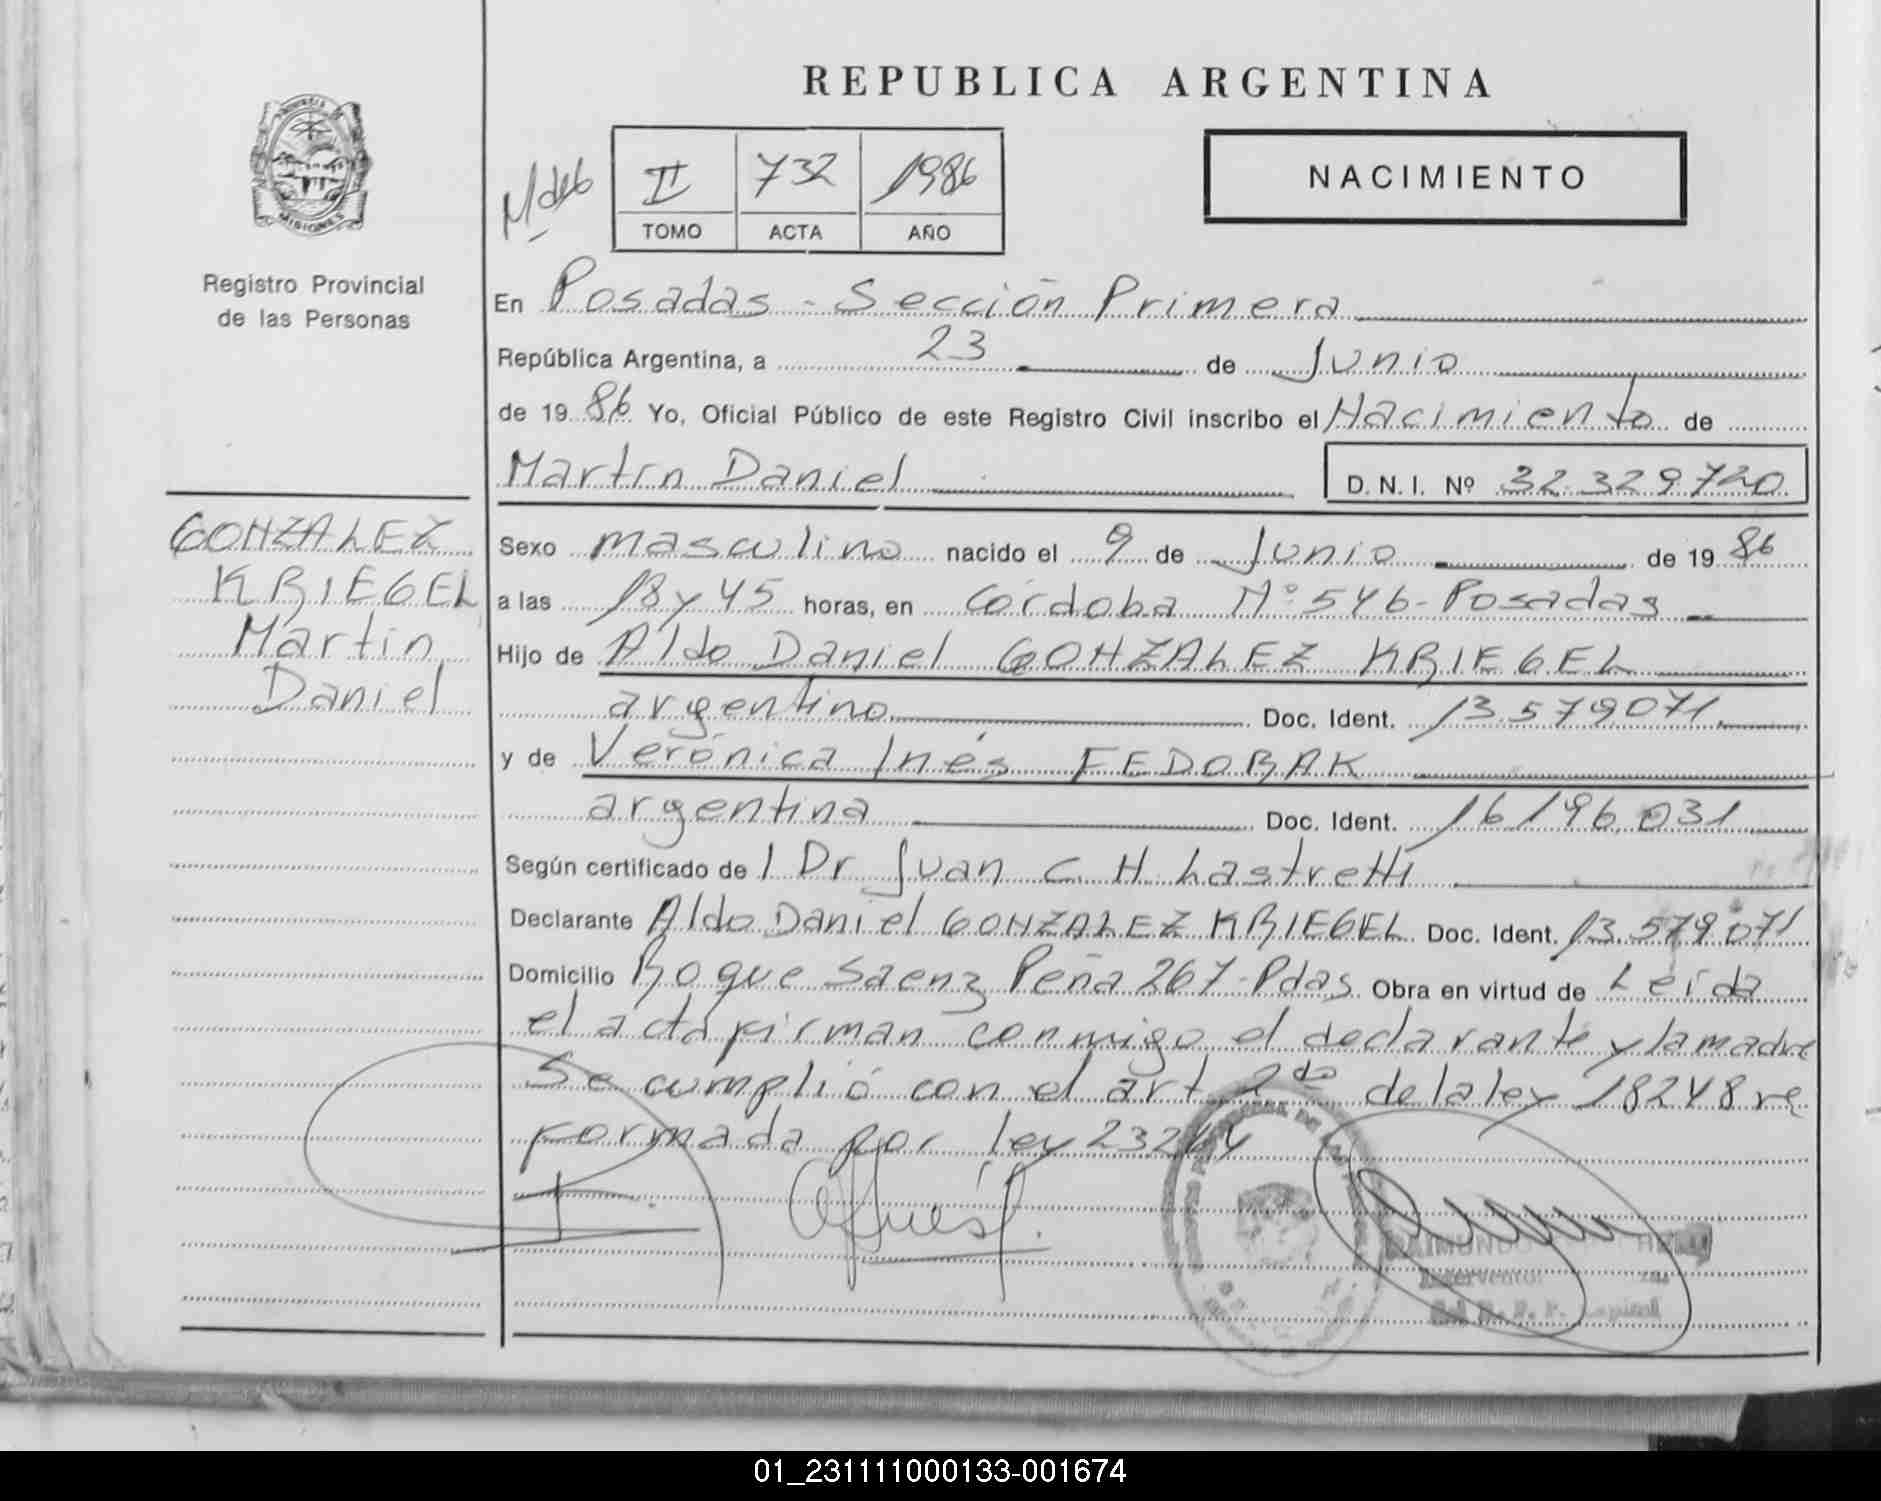 REPUBLICA ARGENTINA
NACIMIENTO
II 732 1986
TOMO ACTA AÑO
PROVINCIA
MISIONES
Registro Provincial
de las Personas
GONZALEZ
KRIEGEL
Martin
Daniel
En Posadas - Sección Primera
República Argentina, a 23 de Junio
de 19 86 Yo, Oficial Público de este Registro Civil inscribo el Nacimiento de
Martín Daniel D.N.I. Nº 32.329.720
Sexo masculino nacido el 9 de Junio de 19 86
a las 18 y 45 horas, en Córdoba Nº 546 - Posadas
Hijo de Aldo Daniel GONZALEZ KRIEGEL
argentino Doc. Ident. 13.579.071
y de Verónica Inés FEDORAK
argentina Doc. Ident. 16.196.031
Según certificado de l Dr Juan C. H. Lastretti
Declarante Aldo Daniel GONZALEZ KRIEGEL Doc. Ident. 13.579.071
Domicilio Roque Saenz Peña 267 - Pdas Obra en virtud de Leída
el acta firman conmigo el declarante y la madre
Se cumplió con el art 2do de la ley 18248 re
formada por ley 23264
RAIMUNDO
Interventor
Capital
01_231111000133-001674